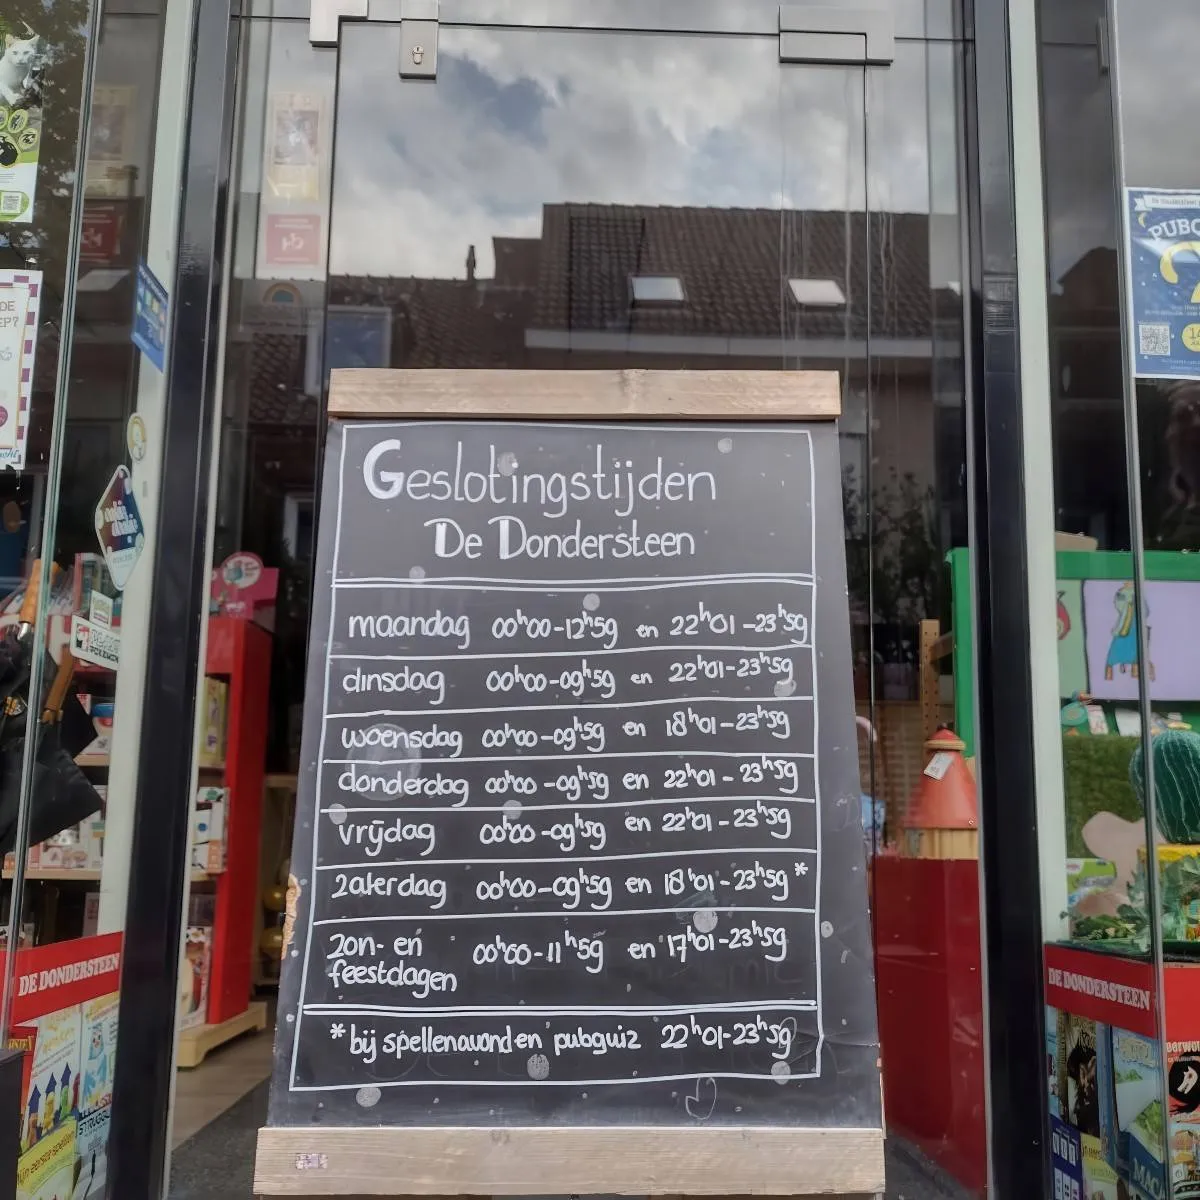 Geslotingstijden
De Dondersteen
maandag 00h00-12h59 en 22h01-23h59
dinsdag 00h00-09h59 en 22h01-23h59
woensdag 00h00-09h59 en 18h01-23h59
donderdag 00h00-09h59 en 22h01-23h59
vrijdag 00h00-09h59 en 22h01-23h59
zaterdag 00h00-09h59 en 18h01-23h59*
zon- en 00h00-11h59 en 17h01-23h59
feestdagen
*bij spellenavond en pubquiz 22h01-23h59
DE DONDERSTEEN
DE DONDERSTEEN